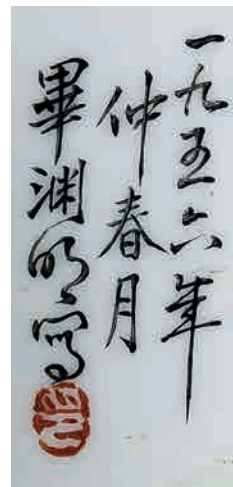 一九五六年
仲春月
畢渊明寫